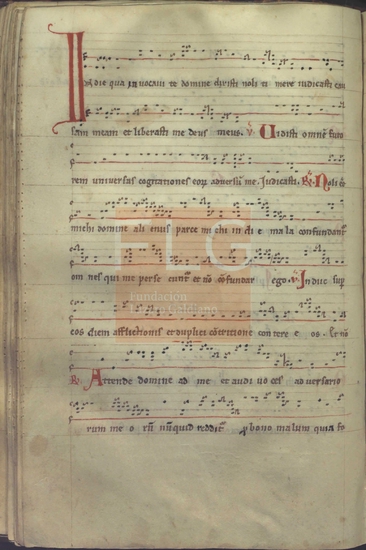 In die qua invocavi te domine dixisti noli timere iudicasti cau
sam meam et liberasti me deus meus. V. Vidisti omnem furo
rem universas cogitationes eorum adversum me. Iudicasti. R. Noli esse
michi domine alienus parce michi in die mala confundantur
omnes qui me persecuntur et non confundar ego. V. Induc super
eos diem afflictionis et duplici contricione contere eos. Et non
R. Attende domine ad me et audi voces adversario
rum meorum nunquid redditur pro bono malum quia fo
FLG
Fundación
Lázaro Galdiano